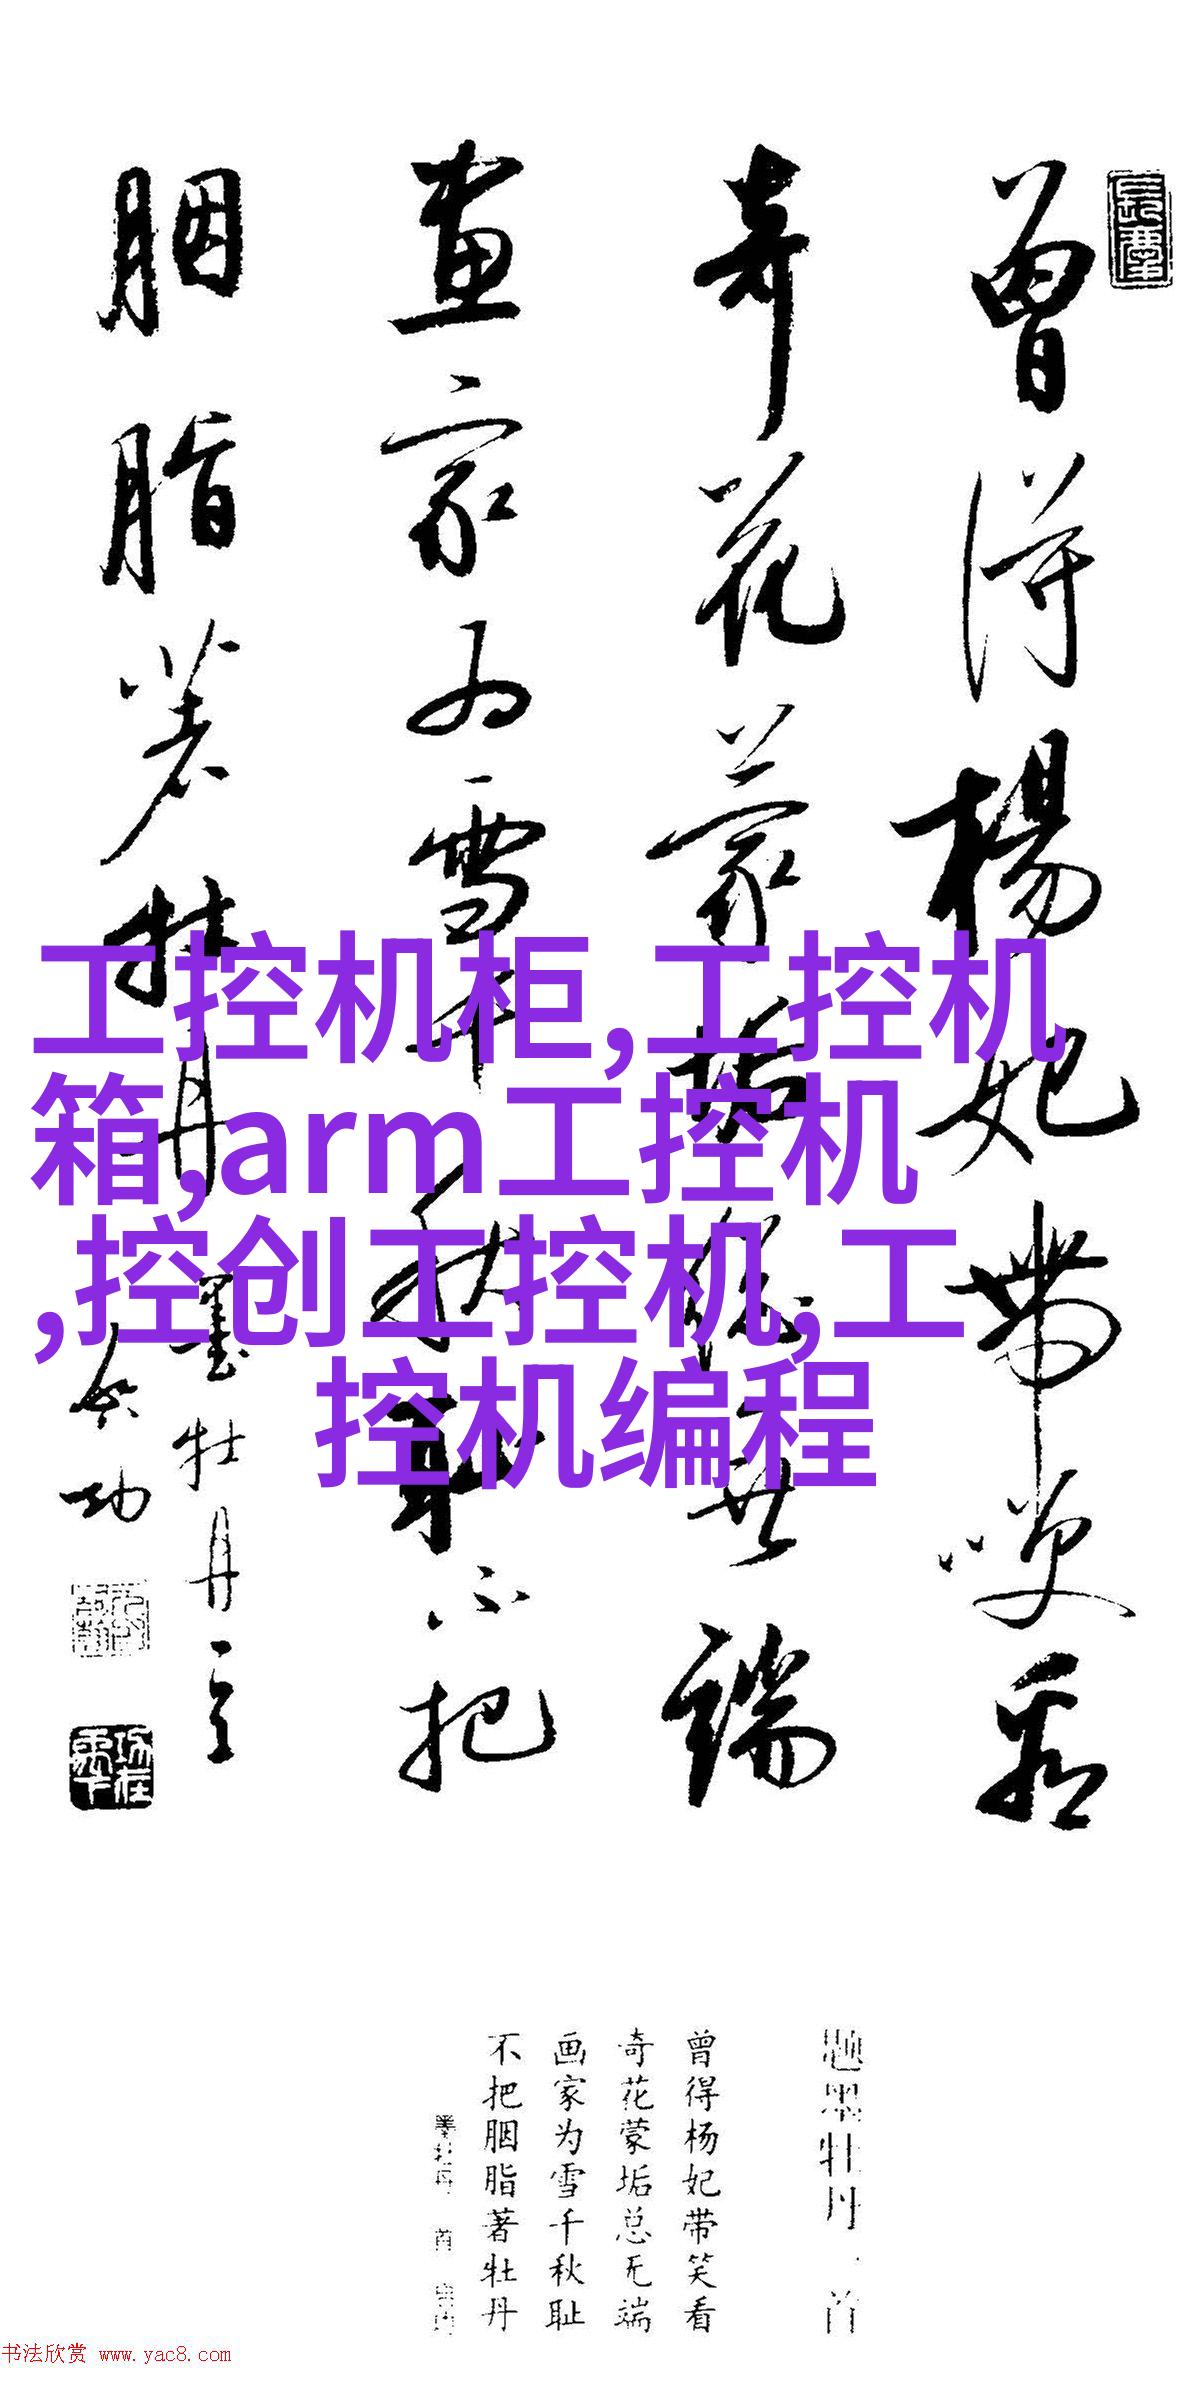 曾得楊妃带笑看
奇花蒙垢總無端
画家为雪千秋耻不把
胭脂著牡丹
墨牡丹一首
启功
工控机柜,工控机
箱,arm工控机
,控创工控机,工
控机编程
题墨牡丹一首
曾得杨妃带笑看
奇花蒙垢总无端
画家为雪千秋耻
不把胭脂著牡丹
书法欣赏 www.yac8.com